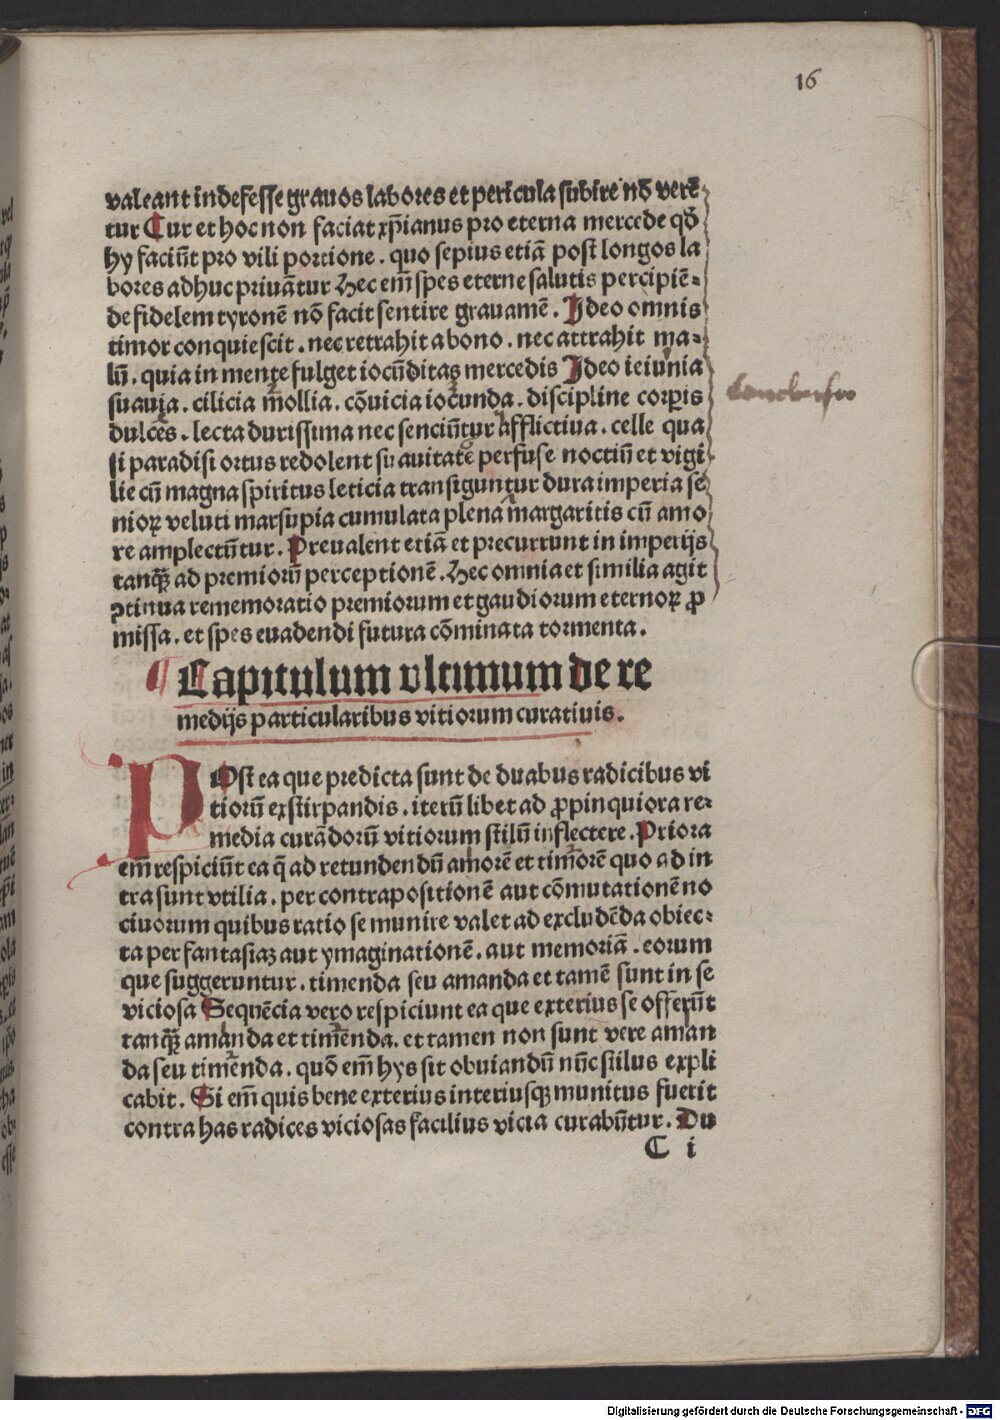 16
valeant indefesse grauos labores et pericula subire nō verē
tur Cur et hoc non faciat xp̄ianus pro eterna mercede qđ
hy faciūt pro vili portione . quo sepius etiā post longos la
bores adhuc priuātur Hec em̄ spes eterne salutis percipiē=
de fidelem tyronē nō facit sentire grauamē . Ideo omnis
timor conquiescit . nec retrahit a bono . nec attrahit ma=
lū . quia in mente fulget iocūditas mercedis Ideo ieiunia
suauia . cilicia mollia . cōuicia iocunda . discipline corpris
dulces . lecta durissima nec senciūtur afflictiua . celle qua
si paradisi ortus redolent suauitate perfuse noctiū et vigi
lie cū magna spiritus leticia transiguntur dura imperia se
nioꝝ veluti marsupia cumulata plena margaritis cū amo
re amplectūtur . Preualent etiā et precurrunt in imperijs
tanqꝫ ad premiorū perceptionē . Hec omnia et similia agit
ꝯtinua rememoratio premiorum et gaudiorum eternoꝝ ꝓ
missa . et spes euadendi futura cōminata tormenta .
¶ Capitulum vltimum de re
medijs particularibus vitiorum curatiuis .
POst ea que predicta sunt de duabus radicibus vi
tiorū exstirpandis . iterū libet ad ꝓpinquiora re=
media curādorū vitiorum stilū inflectere . Priora
em̄ respiciūt ea q̄ ad retundendū amorē et timorē quo ad in
tra sunt vtilia . per contrapositionē aut cōmutationē no
ciuorum quibus ratio se munire valet ad excludēda obiec=
ta per fantasiaꝫ aut ymaginationē . aut memoriā . eorum
que suggeruntur . timenda seu amanda et tamē sunt in se
viciosa Sequēcia vero respiciunt ea que exterius se offerūt
tanqꝫ amanda et timenda . et tamen non sunt vere aman
da seu timenda . quō em̄ hys sit obuiandū nūc stilus expli
cabit . Si em̄ quis bene exterius interiusqꝫ munitus fuerit
contra has radices viciosas facilius vicia curabūtur . Du
C i
Digitalisierung gefördert durch die Deutsche Forschungsgemeinschaft - DFG